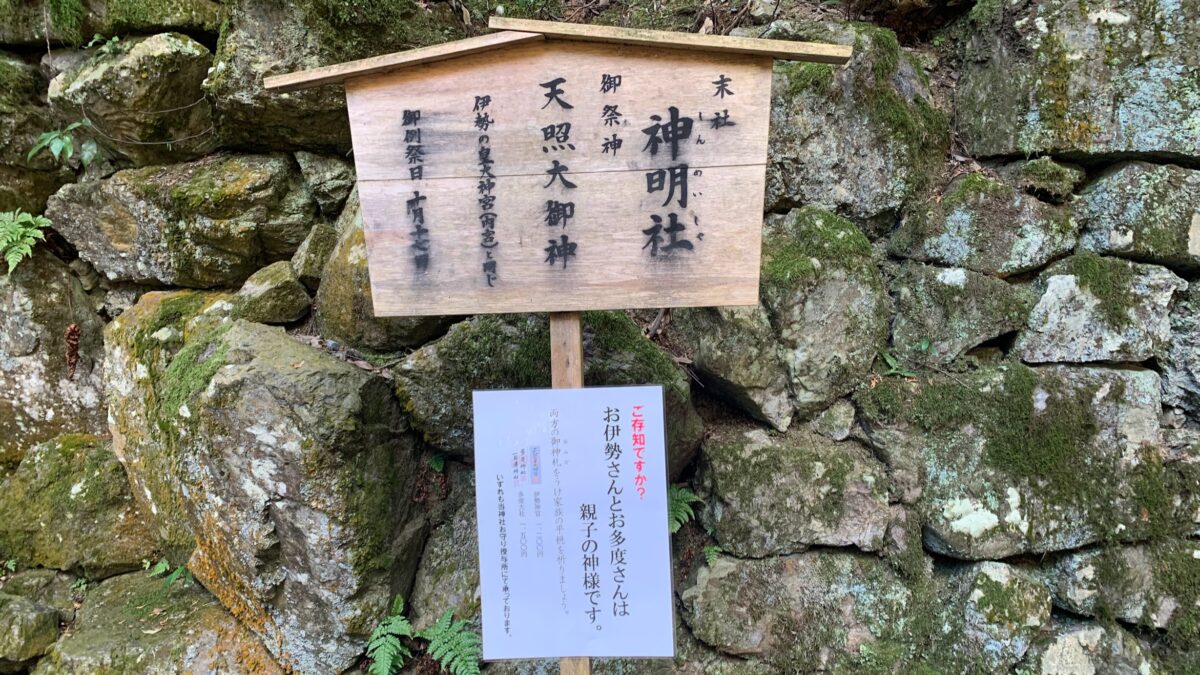 末社
神明社
しんめいしゃ
御祭神
天照大御神
伊勢の皇大神宮(内宮)と同じ
御例祭日 十月十七日
ご存知ですか?
お伊勢さんとお多度さんは
親子の神様です。
両方の御神札をうけ家族の平穏を祈りましょう。
伊勢神宮 一、二〇〇円
多度大社 一、〇〇〇円
いずれも当神社お守り授与所にて承っております。